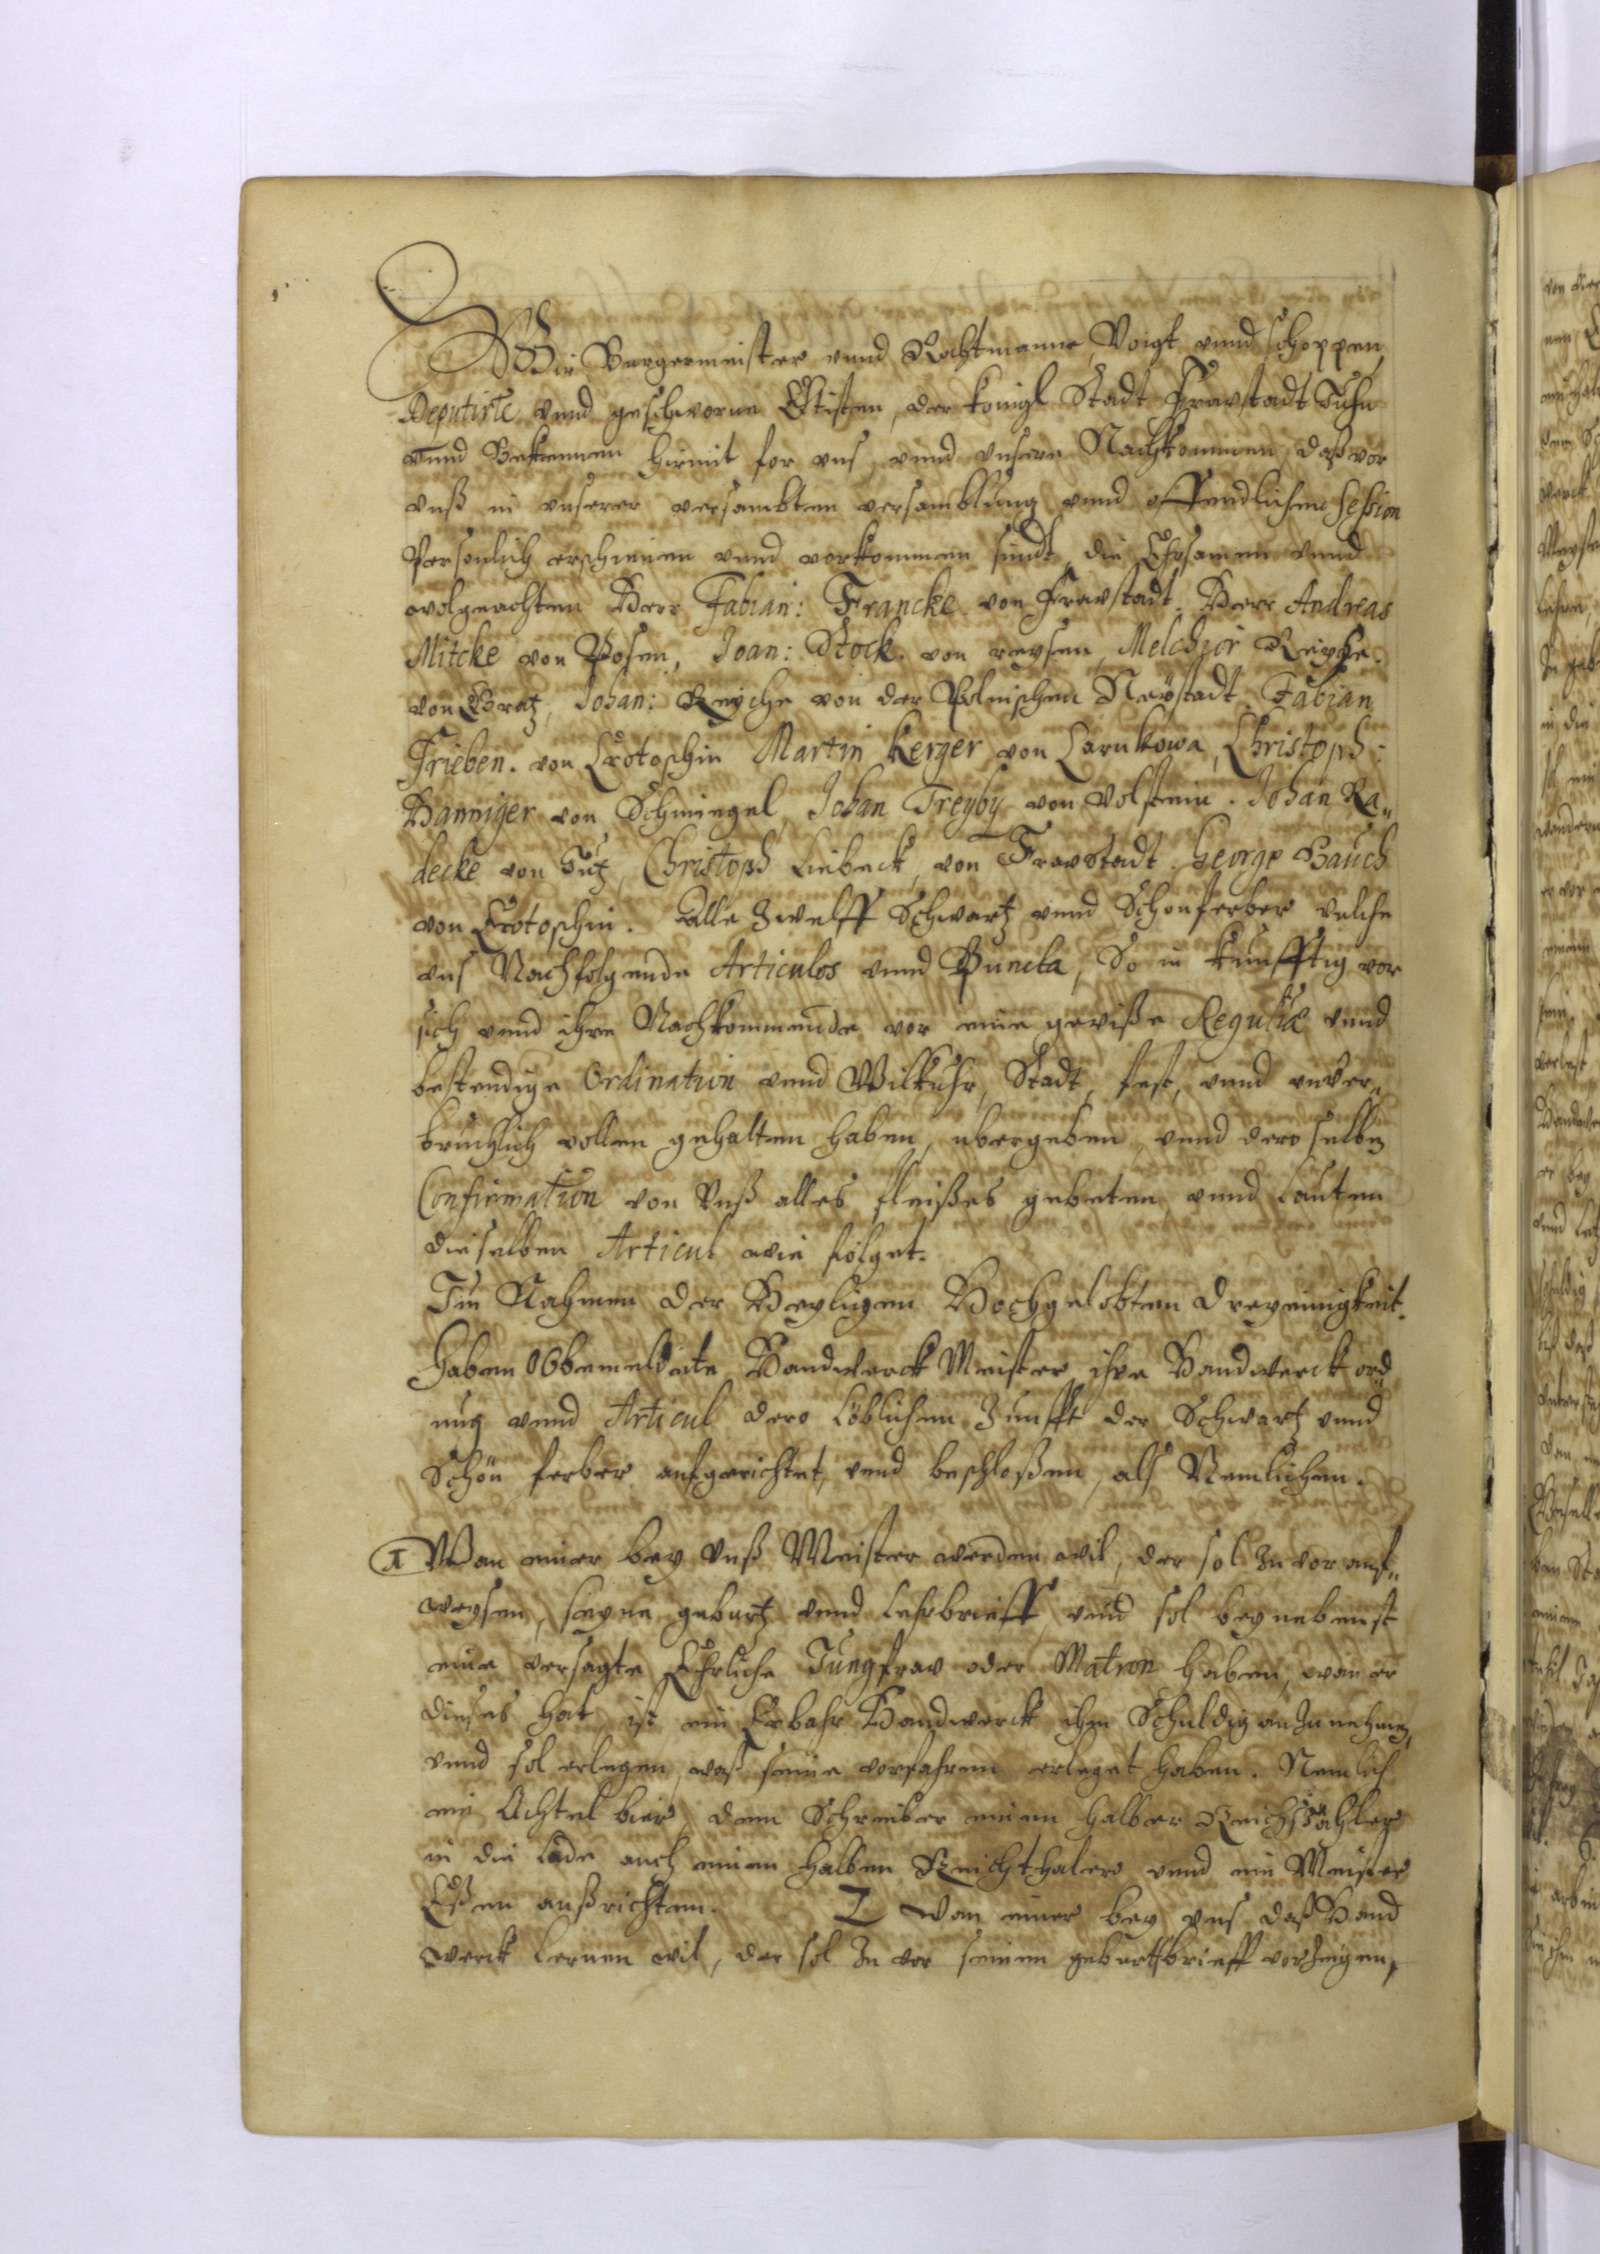 Wir Burgermeister vnnd Rahtmanne, Voigt vnnd schoppen
Deputirte vnnd geschworne Eltisten, der Königl Stadt Fravstadt Tuhn
vnnd Bekennen hirmit for vns vnnd vnsere Nachkommen, daß vor
vnß in vnserer versambten versamblung vnnd offendlichen Session
Persenlich erschienen vnnd vorkommen sindt, die Ehrsamen vnnd
wolgeachten Herr Fabian: Francke von Fravstadt. Herr Andreas
Mitcke von Posen, Joan: Stock. von reysen, Melchior Reiche.
von Gratz, Johan: Reyche von der Polnischen Neüstadt. Fabian
Frieben. von Crotoschin Martin Kerger von Carnkowa, Christoph:
Hanniger von Schmiegel, Johan Treyby von Volstein. Johan Ra„
decke von Tütz, Christoph Liebeck, von Fravstadt. George Hauch
von Crotoschin. Alle Zwelff Schwartz vnnd Schonferber welche
vns Nachfolgende Articulos vnnd Puncta, So in künfftig vor
sich vnnd ihre Nachkommende vor eine gewiße Regulæ vnnd
bestendige Ordination vnnd Wilkuhr, Stadt, fest, vnnd vnver„
bruchlich wollen gehalten haben, ubergeben, vnnd dero selben
Confirmation von Vnß alles fleißes gebeten vnnd Lauten
dieselben Articul wie folget.
Im Nahmen der Heyligen Hochgelobten dreyeinigkeit.
Haben Obbemeldete Handwerck Meister, ihre Handwerck ord
nug vnnd Articul dero Löblichen Zunfft der Schwartz vnnd
Schön ferber aufgerichtet, vnnd beschloßen, alß Nemlichen.
1 Wan einer bey Vnß Meister werden wil, der sol Zu vor auf„
weysen, seyne geburtz vnnd Lehrbrieff vnnd sol beynebenst
eine versagte Ehrliche Jungfrav oder Matron haben, wan er
dieses hat, ist ein Erbahr Handwerck ihn Schuldig an Zu nehmen,
vnnd sol erlegen, waß seine vorfahren erleget haben. Nemlich
ein Achtel bier, dem Schreiber einen halber Reichsthaler
in die Lade auch einen halben Reichthaler vnnd ein Meister
Eßen außrichten. 2 Wan einer bey vns daß Hand
werck Lernen wil, der sol Zu vor seinen geburttbrieff vorzeigen,